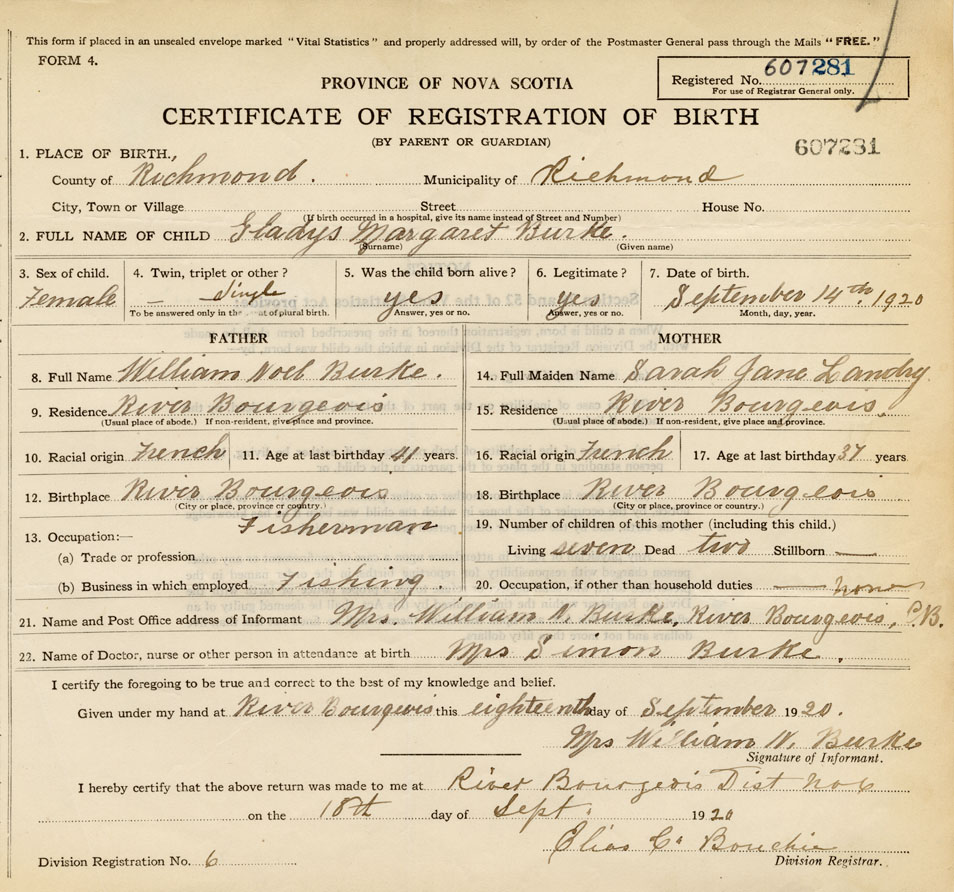 This form if placed in an unsealed envelope marked "Vital Statistics" and properly addressed will, by order of the Postmaster General pass through the Mails "FREE."
FORM 4.
Registered No. 607281
For use of Registrar General only.
PROVINCE OF NOVA SCOTIA
CERTIFICATE OF REGISTRATION OF BIRTH
(BY PARENT OR GUARDIAN)
607281
1. PLACE OF BIRTH.,
County of Richmond. Municipality of Richmond
City, Town or Village Street House No.
(If birth occurred in a hospital, give its name instead of Street and Number)
2. FULL NAME OF CHILD Gladys Margaret Burke.
(Surname) (Given name)
3. Sex of child. 4. Twin, triplet or other? 5. Was the child born alive? 6. Legitimate? 7. Date of birth.
Female — Single yes yes September 14th, 1920
To be answered only in the at of plural birth. Answer, yes or no. Answer, yes or no. Month, day, year.
FATHER MOTHER
8. Full Name William Noel Burke. 14. Full Maiden Name Sarah Jane Landry
9. Residence River Bourgeois 15. Residence River Bourgeois.
(Usual place of abode.) If non-resident, give place and province. (Usual place of abode.) If non-resident, give place and province.
10. Racial origin French 11. Age at last birthday 41 years. 16. Racial origin French 17. Age at last birthday 37 years
12. Birthplace River Bourgeois 18. Birthplace River Bourgeois
(City or place, province or country.) (City or place, province or country.)
13. Occupation:— Fisherman 19. Number of children of this mother (including this child.)
(a) Trade or profession Living seven Dead two Stillborn —
(b) Business in which employed Fishing. 20. Occupation, if other than household duties — none
21. Name and Post Office address of Informant Mrs. William N. Burke, River Bourgeois, C.B.
22. Name of Doctor, nurse or other person in attendance at birth Mrs Simon Burke.
I certify the foregoing to be true and correct to the best of my knowledge and belief.
Given under my hand at River Bourgeois this eighteenth day of September 1920.
Mrs William N. Burke
Signature of Informant.
I hereby certify that the above return was made to me at River Bourgeois Dist No 6
on the 18th day of Sept. 1920
Elias C. Bouchie
Division Registration No. 6 Division Registrar.